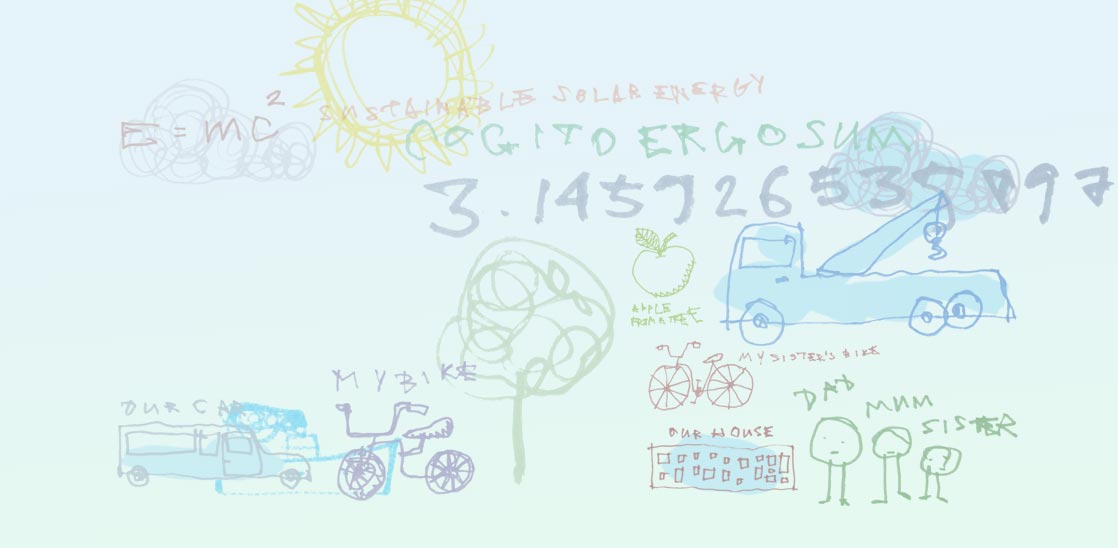 E = MC²
SUSTAINABLE SOLAR ENERGY
COGITO ERGO SUM
3.145926535897
APPLE
FROM A TREE
MY SISTER'S BIKE
MY BIKE
OUR CAR
OUR HOUSE
DAD
MUM
SISTER